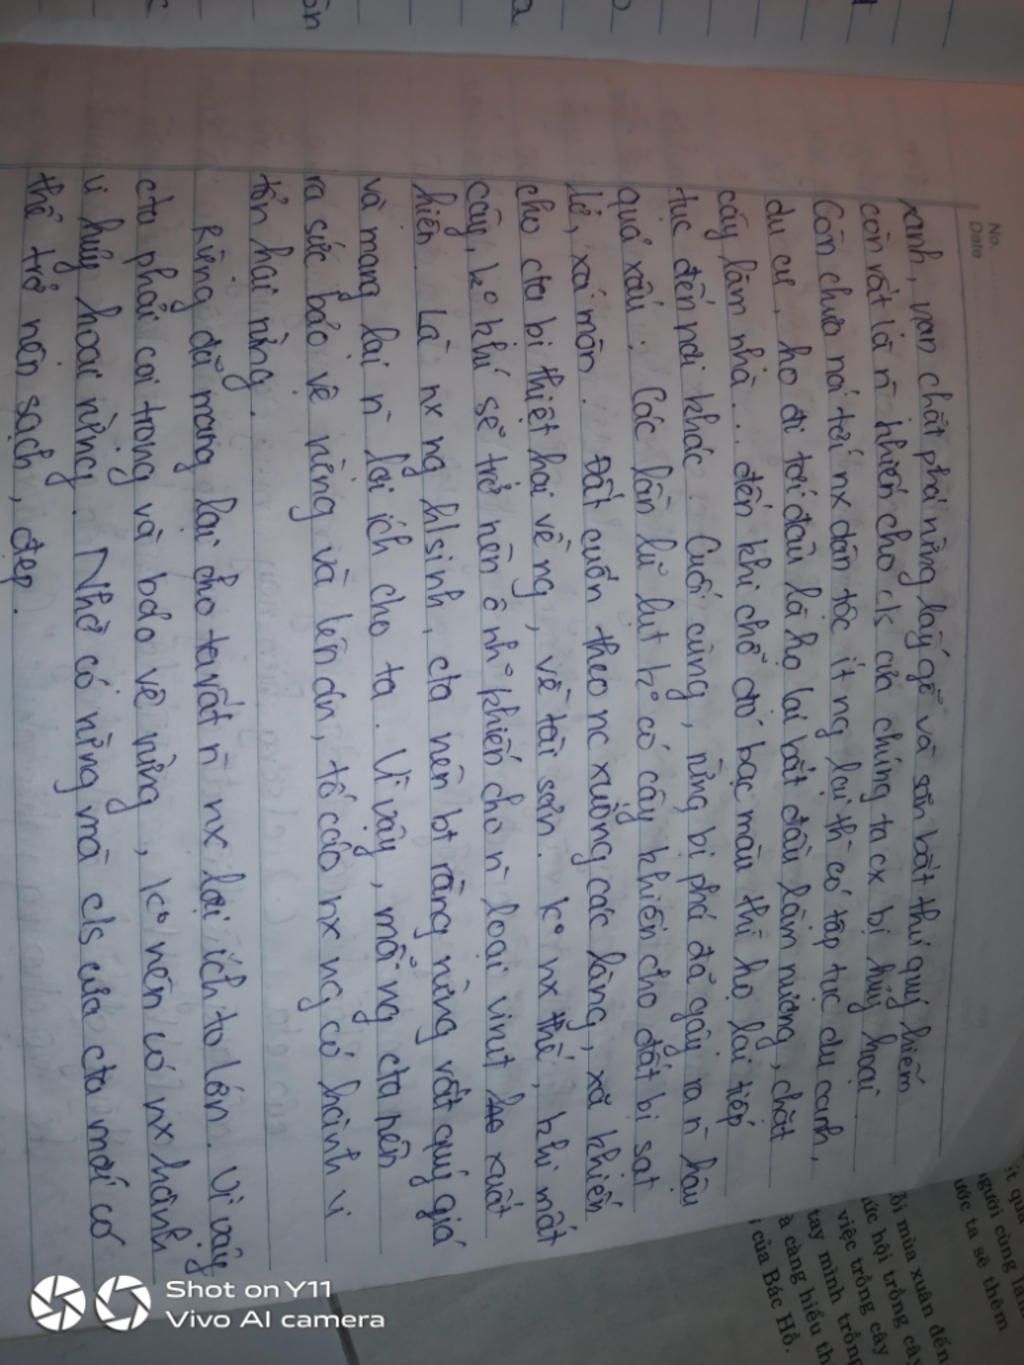 No
Date
xanh, nạn chặt phá rừng lấy gỗ và săn bắt thú quý hiếm
còn rất là n̄ khiến cho c/s của chúng ta cx bị hủy hoại
Còn chưa nói tới nx dân tộc ít ng lại thì có tập tục du canh,
du cư, họ đi tới đâu là họ lại bắt đầu làm nương, chặt
cây làm nhà... đến khi chỗ đó bạc màu thì họ lại tiếp
tục đến nơi khác. Cuối cùng, rừng bị phá đã gây ra n̄ hậu
quả xấu. Các lần lũ lụt k° có cây khiến cho đất bị sạt
lở, xói mòn. Đất cuốn theo nc xuống các làng, xã khiến
cho cta bị thiệt hại về ng, về tài sản. k° nx thế, khi mất
cây, k° khí sẽ trở nên ô nh° khiến cho n̄ loại virut xuất
hiện. Là nx ng h/sinh, cta nên bt rằng rừng rất quý giá
và mang lại n̄ lợi ích cho ta. Vì vậy, mỗi ng cta nên
ra sức bảo vệ rừng và lên án, tố cáo nx ng có hành vi
tổn hại rừng.
Rừng đã mang lại cho ta rất n̄ nx lợi ích to lớn. Vì vậy
cta phải coi trọng và bảo vệ rừng, k° nên có nx hành
vi hủy hoại rừng. Nhờ có rừng mà c/s của cta mới có
thể trở nên sạch, đẹp.
ít quá
người cùng làm
ước ta sẽ thêm
mùa xuân đến
ức hội trồng cây
việc trồng cây
tay mình trồng
à càng hiểu th
của Bác Hồ.
Shot on Y11
Vivo AI camera